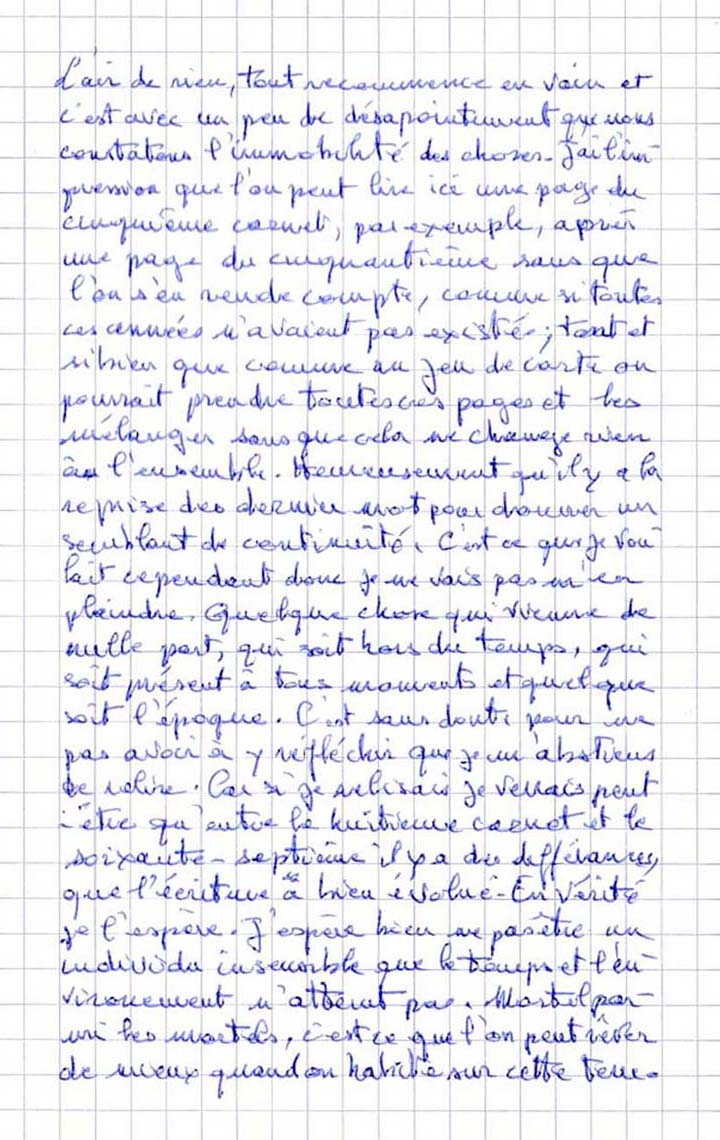 L'air de rien, tout recommence en vain et
c'est avec un peu de désapointement que nous
constatons l'immobilité des choses. J'ai l'im-
pression que l'on peut lire ici une page du
cinquième carnet, par exemple, après
une page du cinquantième sans que
l'on s'en rende compte, comme si toutes
ces années n'avaient pas existé ; tant et
si bien que comme un jeu de carte on
pourrait prendre toutes ces pages et les
mélanger sans que cela ne change rien
à l'ensemble. Heureusement qu'il y a la
reprise des dernier mot pour donner un
semblant de continuité. C'est ce que je vou-
lait cependant donc je ne vais pas m'en
plaindre. Quelque chose qui vienne de
nulle part, qui soit hors du temps, qui
soit présent à tous moments et quelque
soit l'époque. C'est sans doute pour ne
pas avoir à y réfléchir que je m'abstiens
de relire. Car si je relisais je verrais peut
-être qu'entre le huitième carnet et le
soixante-septième il y a des différences,
que l'écriture a bien évolué. En vérité
je l'espère. J'espère bien ne pas être un
individu insensible que le temps et l'en-
vironement n'atteint pas. Mortel par-
mi les mortels, c'est ce que l'on peut rêver
de mieux quand on habite sur cette terre.